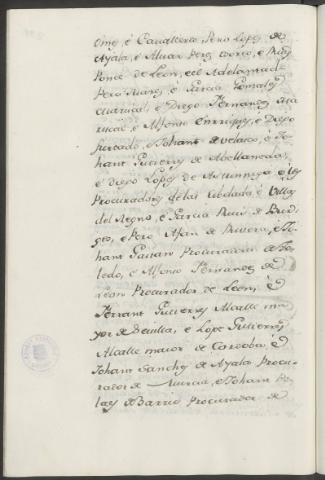 omes, é Cavalleros, Pero Lopez de
Ayala, é Alvar Perez Osorio, é Ruy
Ponce de Leon, é el Adelantado
Pero Suarez, é Garcia Gonzalez
é Diego Fernandez Ma
riscal, é Alfonso Enrriquez, é Diego
Furtado, é Johant de Velasco, é Jo
hant Gutierrez de Abellaneda,
é Diego Lopez de Astunniga é los
Procuradores de las Cibdades, é Villas
del Regno, é Garcia Ruiz de Bur
gos, é Pero Afan de Rivera, é Jo
hant Gaitan Procuradores de To
ledo, é Alfonso Fernandez de
Leon Procurador de Leon, é
Ferrant Gutierrez Alcalle ma
yor de Sevilla, é Lope Gutierrez
Alcalle maior de Cordoba é
Johan Sanchez de Ayala Procu
rador de Murcia, é Johan Pe
laez de Barrio Procurador de